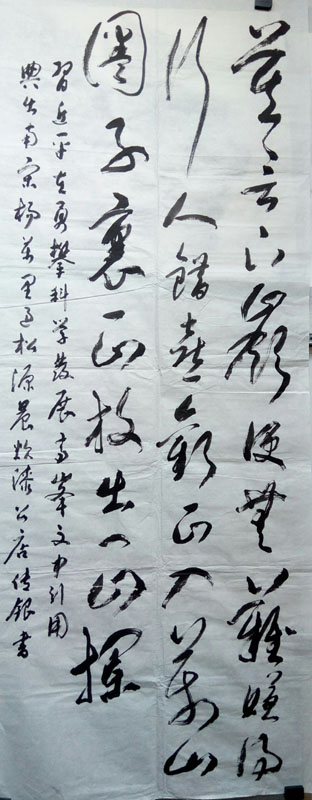 莫言下嶺便無難賺得
行人錯喜歡正入萬山
圈子裏一山放出一山攔
習近平在勇攀科学發展高峯文中引用
典出南宋楊萬里过松源晨炊漆公店 银書